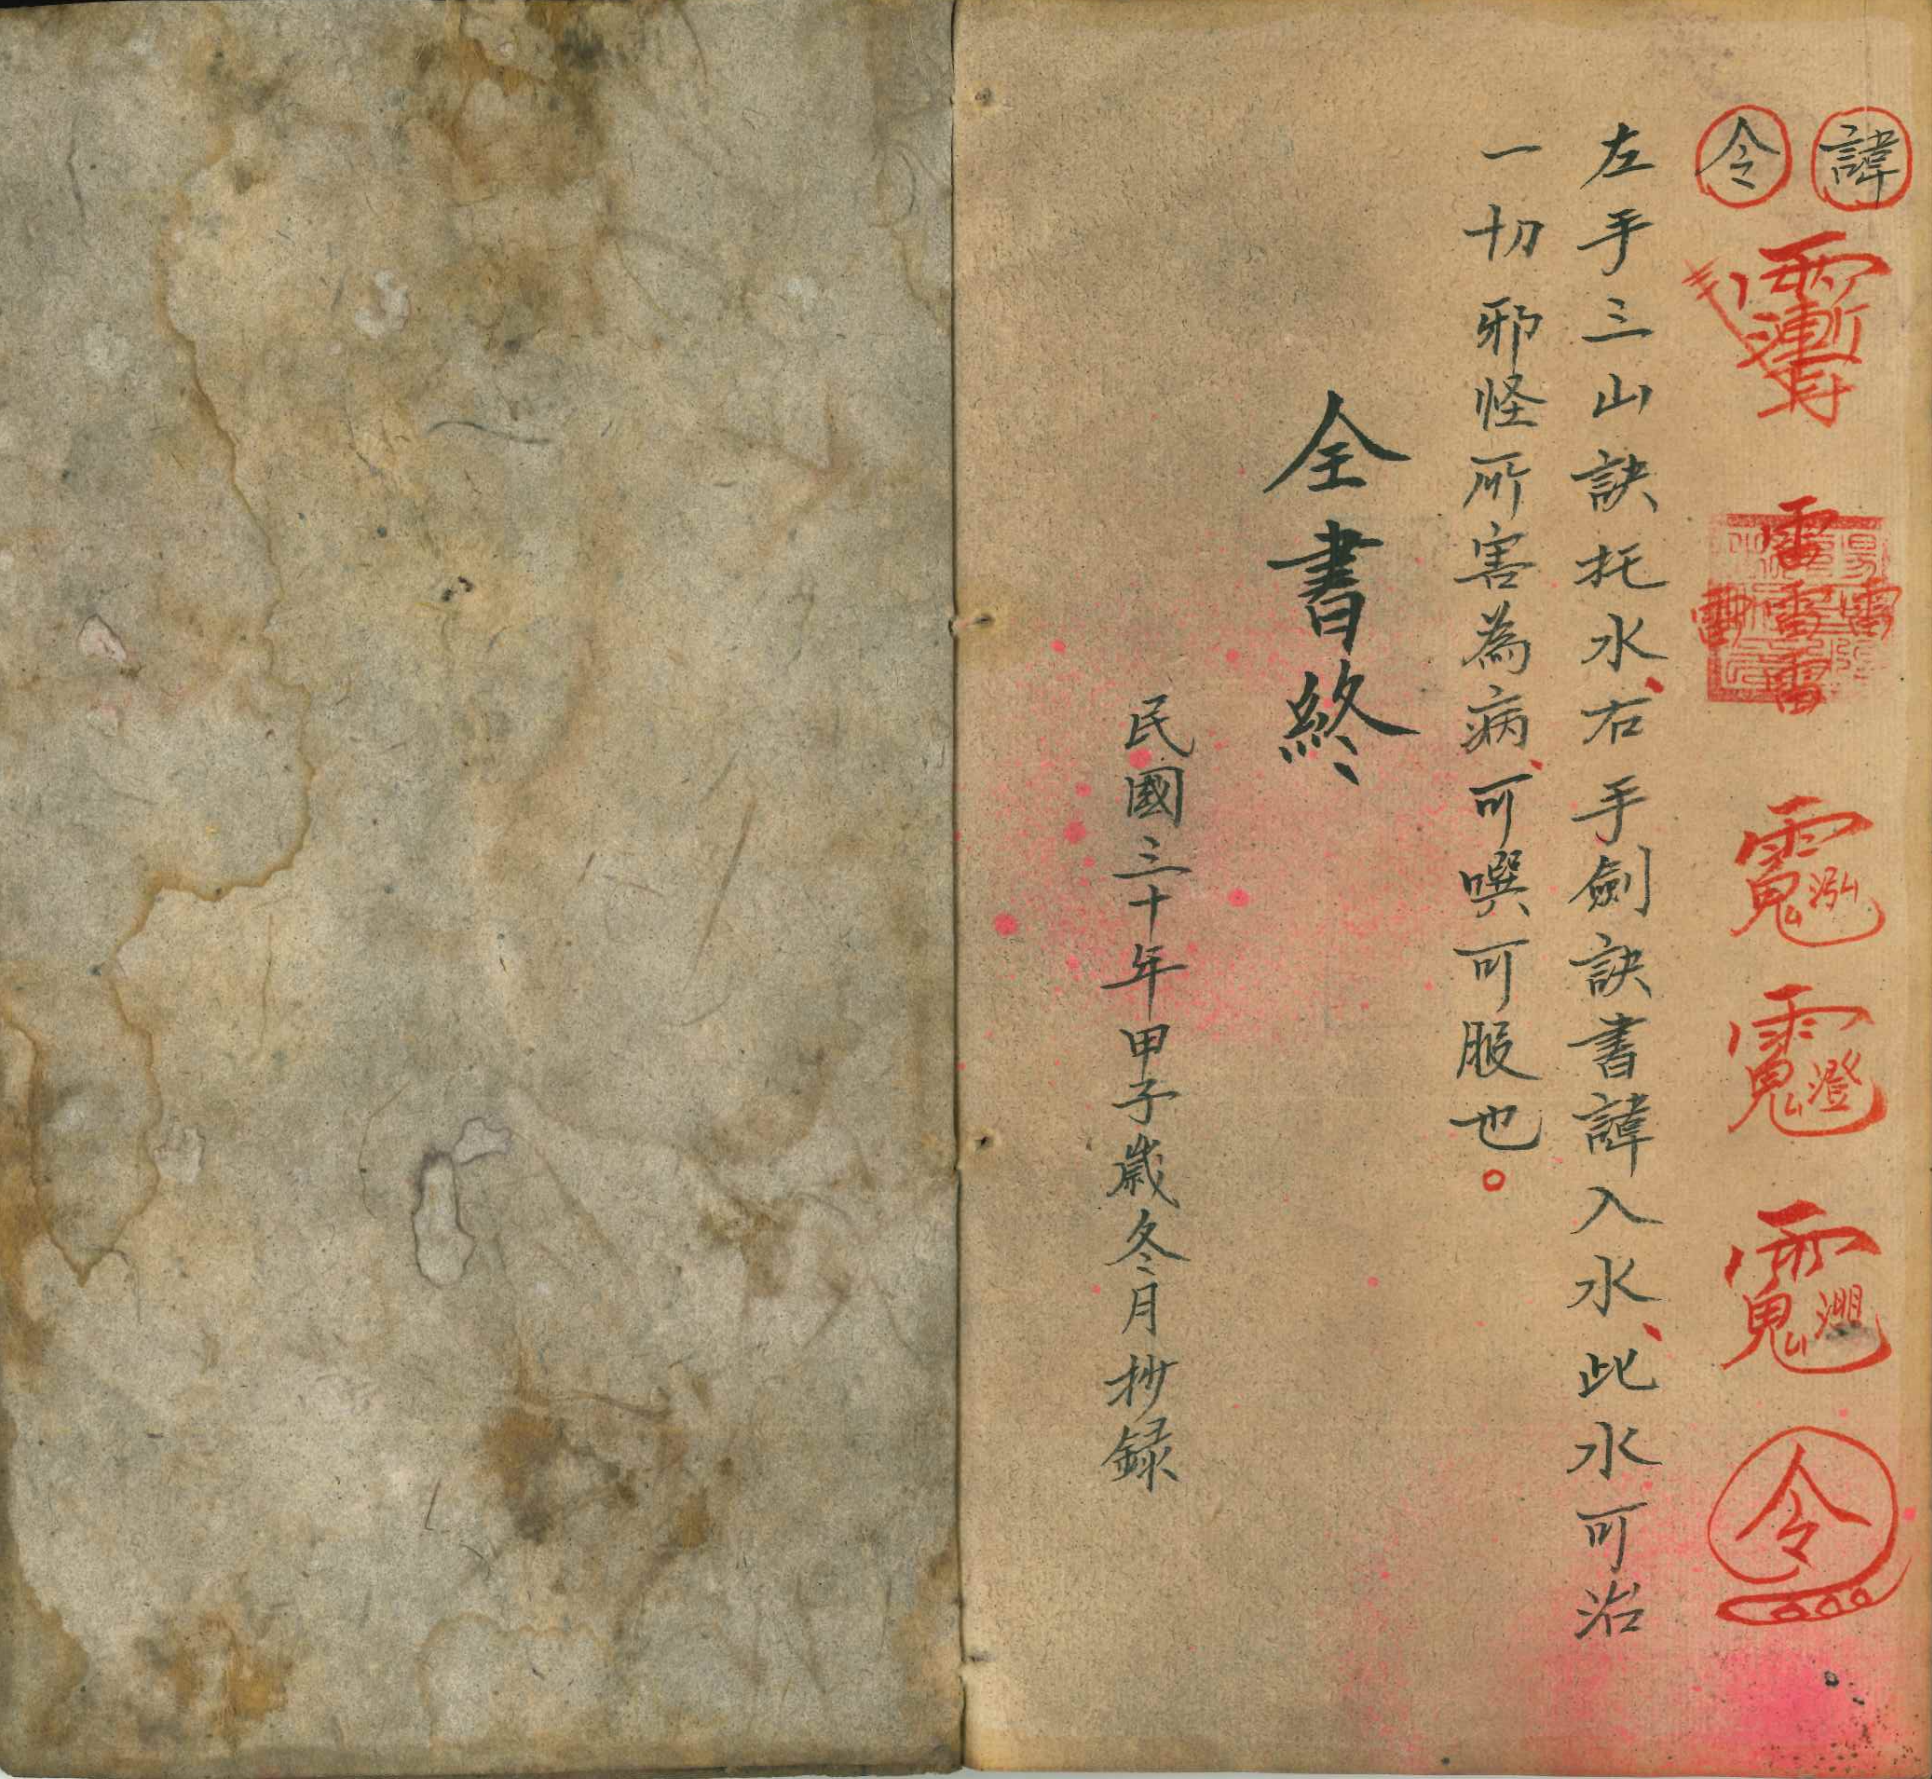 諱
令
雷
雷 雷 雷
雷
令
左手三山訣托水、右手劍訣書諱入水、此水可治
一切邪怪所害為病、可噀可服也。
全書終
民國三十年甲子歲冬月抄録